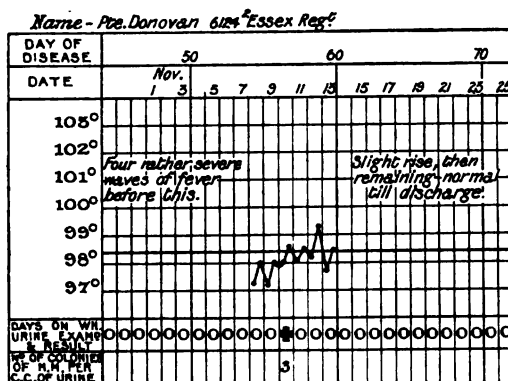 Name - Pte. Donovan 6124 2 Essex Regt
DAY OF DISEASE 50 60 70
DATE Nov. 1 3 5 7 9 11 13 15 17 19 21 23 25
105°
102°
101°
100°
99°
98°
97°
Four rather severe
waves of fever
before this.
Slight rise, then
remaining normal
till discharge.
DAYS ON WH
URINE EXAMD
& RESULT
O O O O O O O O O O O O + O O O O O O O O O O O O O O O
No OF COLONIES
OF M.M. PER
C.C. OF URINE
3